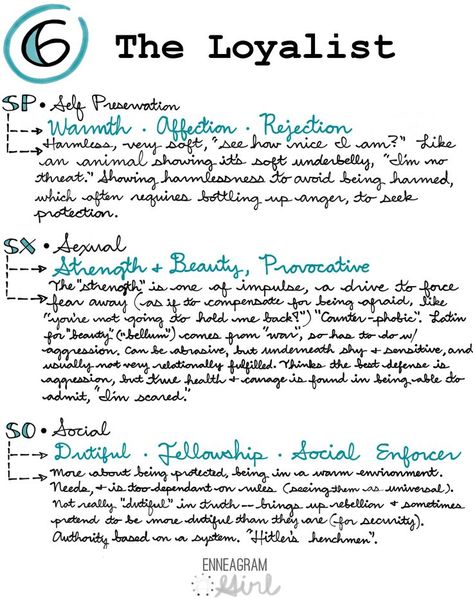 6 The Loyalist
SP • Self Preservation
Warmth • Affection • Rejection
Harmless, very soft, "see how nice I am?" Like
an animal showing its soft underbelly, "I'm no
threat." Showing harmlessness to avoid being harmed,
which often requires bottling up anger, to seek
protection.
SX • Sexual
Strength & Beauty, Provocative
The "strength" is one of impulse, a drive to force
fear away (as if to compensate for being afraid, like
"you're not going to hold me back?") "Counter-phobic". Latin
for "beauty" ("bellum") comes from "war", so has to do w/
aggression. Can be abrasive, but underneath shy & sensitive, and
usually not very relationally fulfilled. Thinks the best defense is
aggression, but true health & courage is found in being able to
admit, "I'm scared."
SO • Social
Dutiful • Fellowship • Social Enforcer
More about being protected, being in a warm environment.
Needs, & is too dependant on rules (seeing them as universal).
Not really "dutiful" in truth -- brings up rebellion & sometimes
pretend to be more dutiful than they are (for security).
Authority based on a system. "Hitler's henchmen".
ENNEAGRAM
Girl